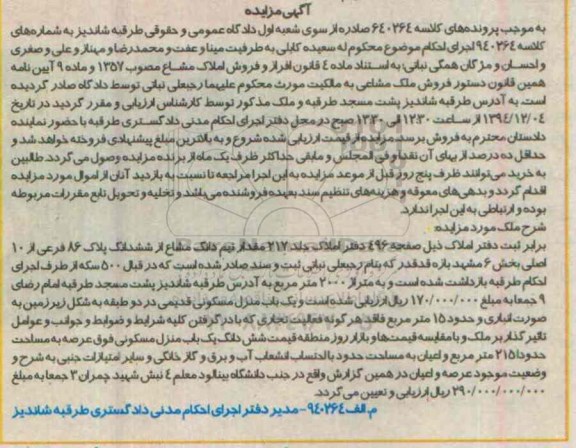 آگهی مزایده
به موجب پرونده‌های کلاسه ۶۴۰۲۶۴ صادره از سوی شعبه اول دادگاه عمومی و حقوقی طرقبه شاندیز به شماره‌های
کلاسه ۹۴۰۲۶۴ اجرای احکام موضوع محکوم له سعیده کابلی به طرفیت مینا و عفت و محمدرضا و مهناز و علی و صغری
و احسان و مژگان همگی نباتی به استناد ماده ۴ قانون افراز و فروش املاک مشاع مصوب ۱۳۵۷ و ماده ۹ آیین نامه
همین قانون دستور فروش ملک مشاعی به مالکیت مورث محکوم علیهما رجبعلی نباتی توسط دادگاه صادر گردیده
است. به آدرس طرقبه شاندیز پشت مسجد طرقبه و ملک مذکور توسط کارشناس ارزیابی و مقرر گردید در تاریخ
۱۳۹۴/۱۲/۰۴ از ساعت ۱۲۳۰ الی ۱۳۳۰ صبح در محل دفتر اجرای احکام مدنی دادگستری طرقبه با حضور نماینده
دادستان محترم به فروش برسد مزایده از قیمت ارزیابی شده شروع و به بالاترین مبلغ پیشنهادی فروخته خواهد شد و
حداقل ده درصد از بهای آن نقدا و فی المجلس و مابقی حداکثر ظرف یک ماه از برنده مزایده وصول می گردد. طالبین
به خرید می‌توانند ظرف پنج روز قبل از موعد مزایده به این اجرا مراجعه تا نسبت به بازدید آنان از اموال مورد مزایده
اقدام گردد و بدهی‌های معوقه و هزینه‌های تنظیم سند بعهده فروشنده می‌باشد و تخلیه و تحویل تابع مقررات مربوطه
بوده و ارتباطی به این اجرا ندارد.
شرح ملک مورد مزایده:
برابر ثبت دفتر املاک ذیل صفحه ۴۹۶ دفتر املاک جلد ۲۱۷ مقدار نیم دانگ مشاع از ششدانگ پلاک ۸۶ فرعی از ۱۰
اصلی بخش ۶ مشهد باره قدقدر که بنام رجبعلی نباتی ثبت و سند صادر شده است که در قبال ۵۰۰ سکه از طرف اجرای
احکام طرقبه بازداشت شده است و به متراژ ۲۰۰۰ متر مربع به آدرس طرقبه شاندیز پشت مسجد طرقبه امام رضای
۹ جمعا به مبلغ ۱۷۰/۰۰۰/۰۰۰ ریال ارزیابی شده است و یک باب منزل مسکونی قدیمی در دو طبقه به شکل زیرزمین به
صورت انباری و حدود ۱۵ متر مربع فاقد هر گونه فعالیت تجاری که با در گرفتن کلیه شرایط و ضوابط و جوانب و عوامل
تاثیر گذار بر ملک و با مقایسه قیمت‌ها و بازار روز منطقه قیمت شش دانگ یک باب منزل مسکونی فوق عرصه به مساحت
حدودا ۲۱۵ متر مربع و اعیان به مساحت حدود با احتساب انشعاب آب و برق و گاز خانگی و سایر امتیازات جنبی به شرح و
وضعیت موجود عرصه و اعیان در همین گزارش واقع در جنب دانشگاه بینالود معلم ۴ نبش شهید چمران ۳ جمعا به مبلغ
۲۹۰/۰۰۰/۰۰۰/۰۰۰ ریال ارزیابی و تعیین می گردد.
م.الف ۹۴۰۲۶۴ - مدیر دفتر اجرای احکام مدنی دادگستری طرقبه شاندیز